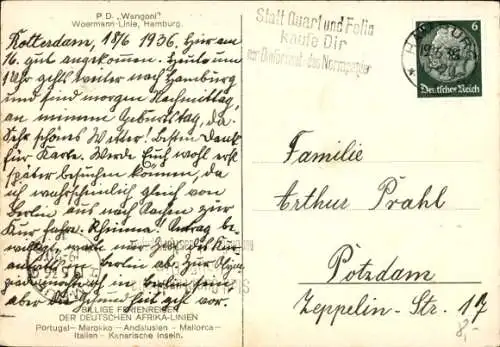 P. D. „Wangoni"
Woermann-Linie, Hamburg.
Rotterdam, 18/6 1936. Hier am
16. gut angekommen. Heute um
Uhr geht's weiter nach Hamburg
und sind morgen Nachmittag,
an meinem Geburtstag, da.
Sehr schönes Wetter! Besten Dank
für Karte. Werde Euch wohl erst
später besuchen können, da
ich wahrscheinlich gleich von
Berlin aus nach Aachen zur
Kur fahre. Rheuma! Antrag be-
willigt, warte nur
in Berlin ab. Zur
ich in Berlin sein
aber die gut vor.
BILLIGE FERIENREISEN
DER DEUTSCHEN AFRIKA-LINIEN
Portugal — Marokko — Andalusien — Mallorca —
Italien — Kanarische Inseln.
Statt Quart und Folio
kaufe Dir
nur Dinformat - das Normpapier
HAMBURG
6
Deutsches Reich
Familie
Arthur Prahl
Potzdam
Zeppelin-Str. 17
8,-